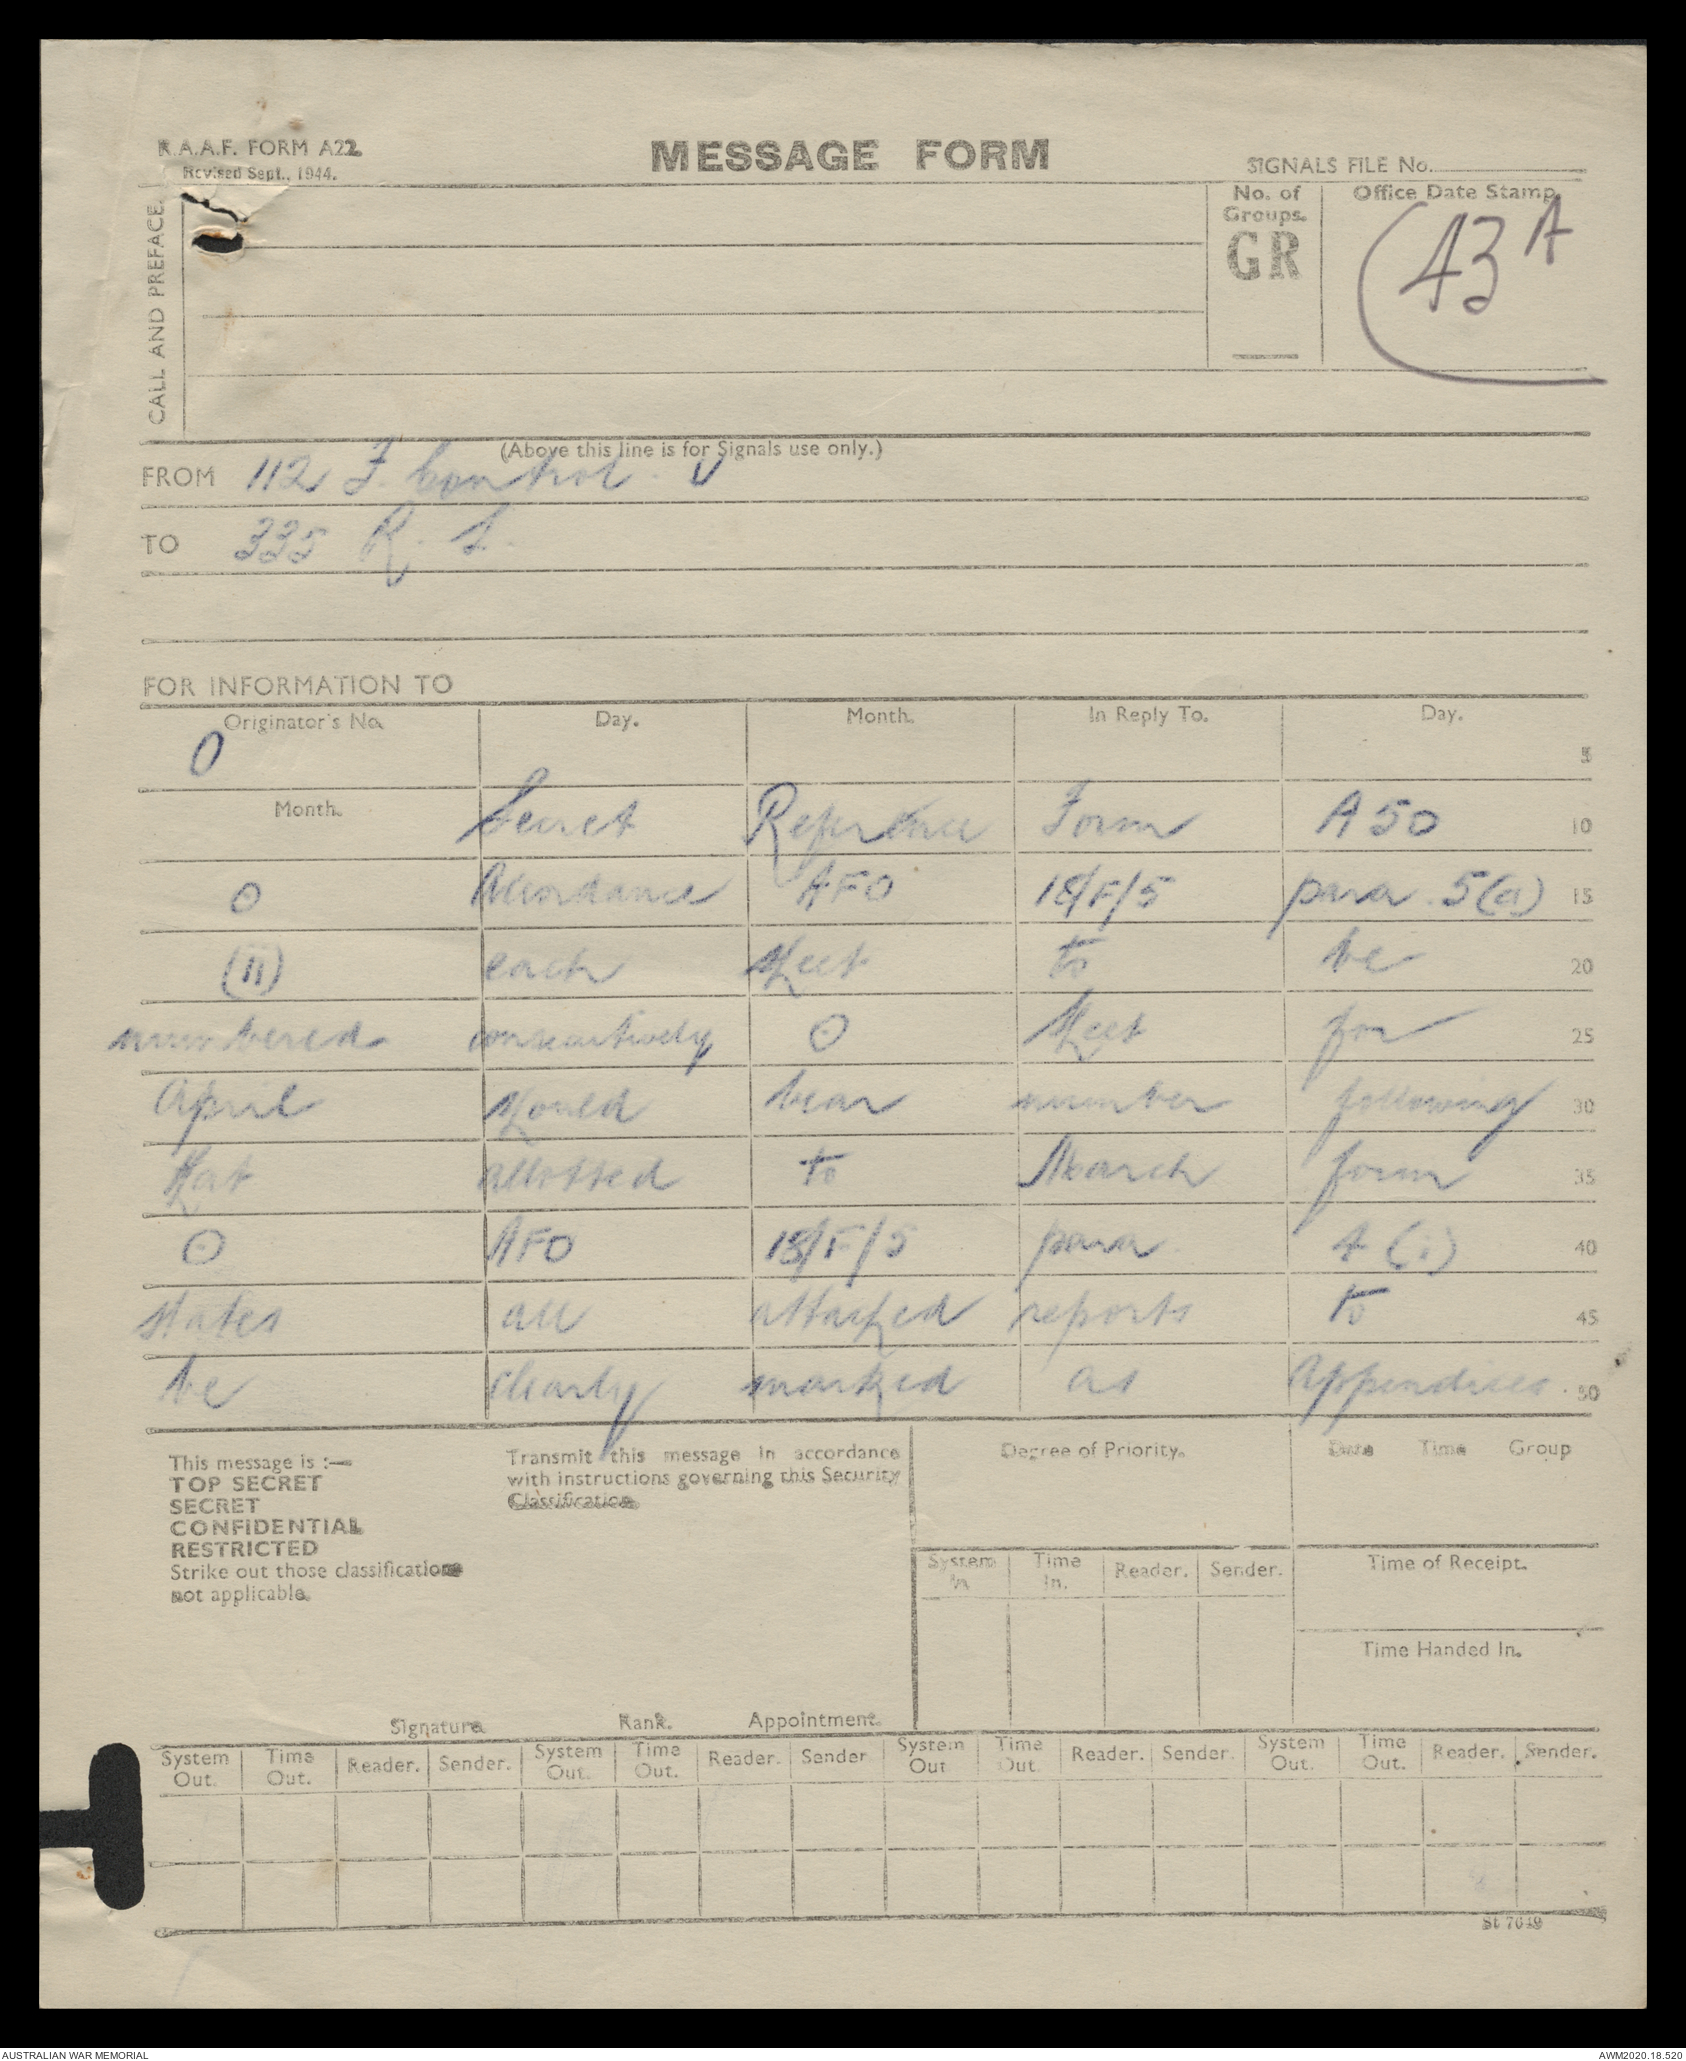 R.A.A.F. FORM A22
Revised Sept., 1944.
MESSAGE FORM
SIGNALS FILE No.
CALL AND PREFACE.
No. of Groups.
GR
Office Date Stamp
43A
(Above this line is for Signals use only.)
FROM 112 F. Control. V
TO 335 R. S.
FOR INFORMATION TO
Originator's No. Day. Month. In Reply To. Day.
0 5
Month. Secret Reference Form A50 10
⊙ Accordance AFO 18/F/5 para. 5(a) 15
(ii) each sheet to be 20
numbered consecutively ⊙ Sheet for 25
April should bear number following 30
that allotted to March form 35
⊙ AFO 18/F/5 para 4 (i) 40
states all attached reports to 45
be clearly marked as Appendices. 50
This message is :—
TOP SECRET
SECRET
CONFIDENTIAL
RESTRICTED
Strike out those classifications
not applicable.
Transmit this message in accordance
with instructions governing this Security
Classification.
Degree of Priority.
Date Time Group
System In Time In. Reader. Sender.
Time of Receipt.
Time Handed In.
Signature Rank. Appointment.
System Out. Time Out. Reader. Sender. System Out. Time Out. Reader. Sender System Out Time Out. Reader. Sender. System Out. Time Out. Reader. Sender.
St 7049
AUSTRALIAN WAR MEMORIAL
AWM2020.18.520